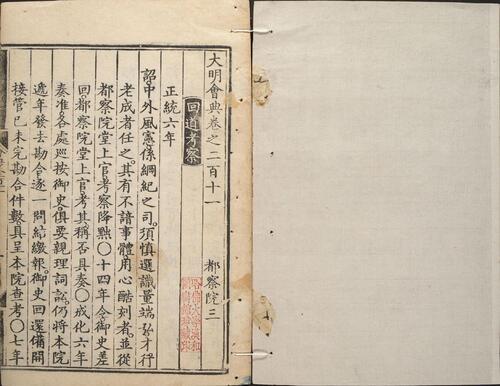 大明會典卷之二百十一
都察院三
回道考察
正統六年
詔中外風憲係綱紀之司須慎選識量端弘才行
老成者任之其有不諳事體用心酷刻者並從
都察院堂上官考察降黜〇十四年令御史差
回都察院堂上官考其稱否具奏〇成化六年
奏准各處廵按御史俱要親理詞訟仍將本院
遞年發去勘合逐一問結繳報御史回還備開
接管已未完勘合件數具呈本院查考〇七年